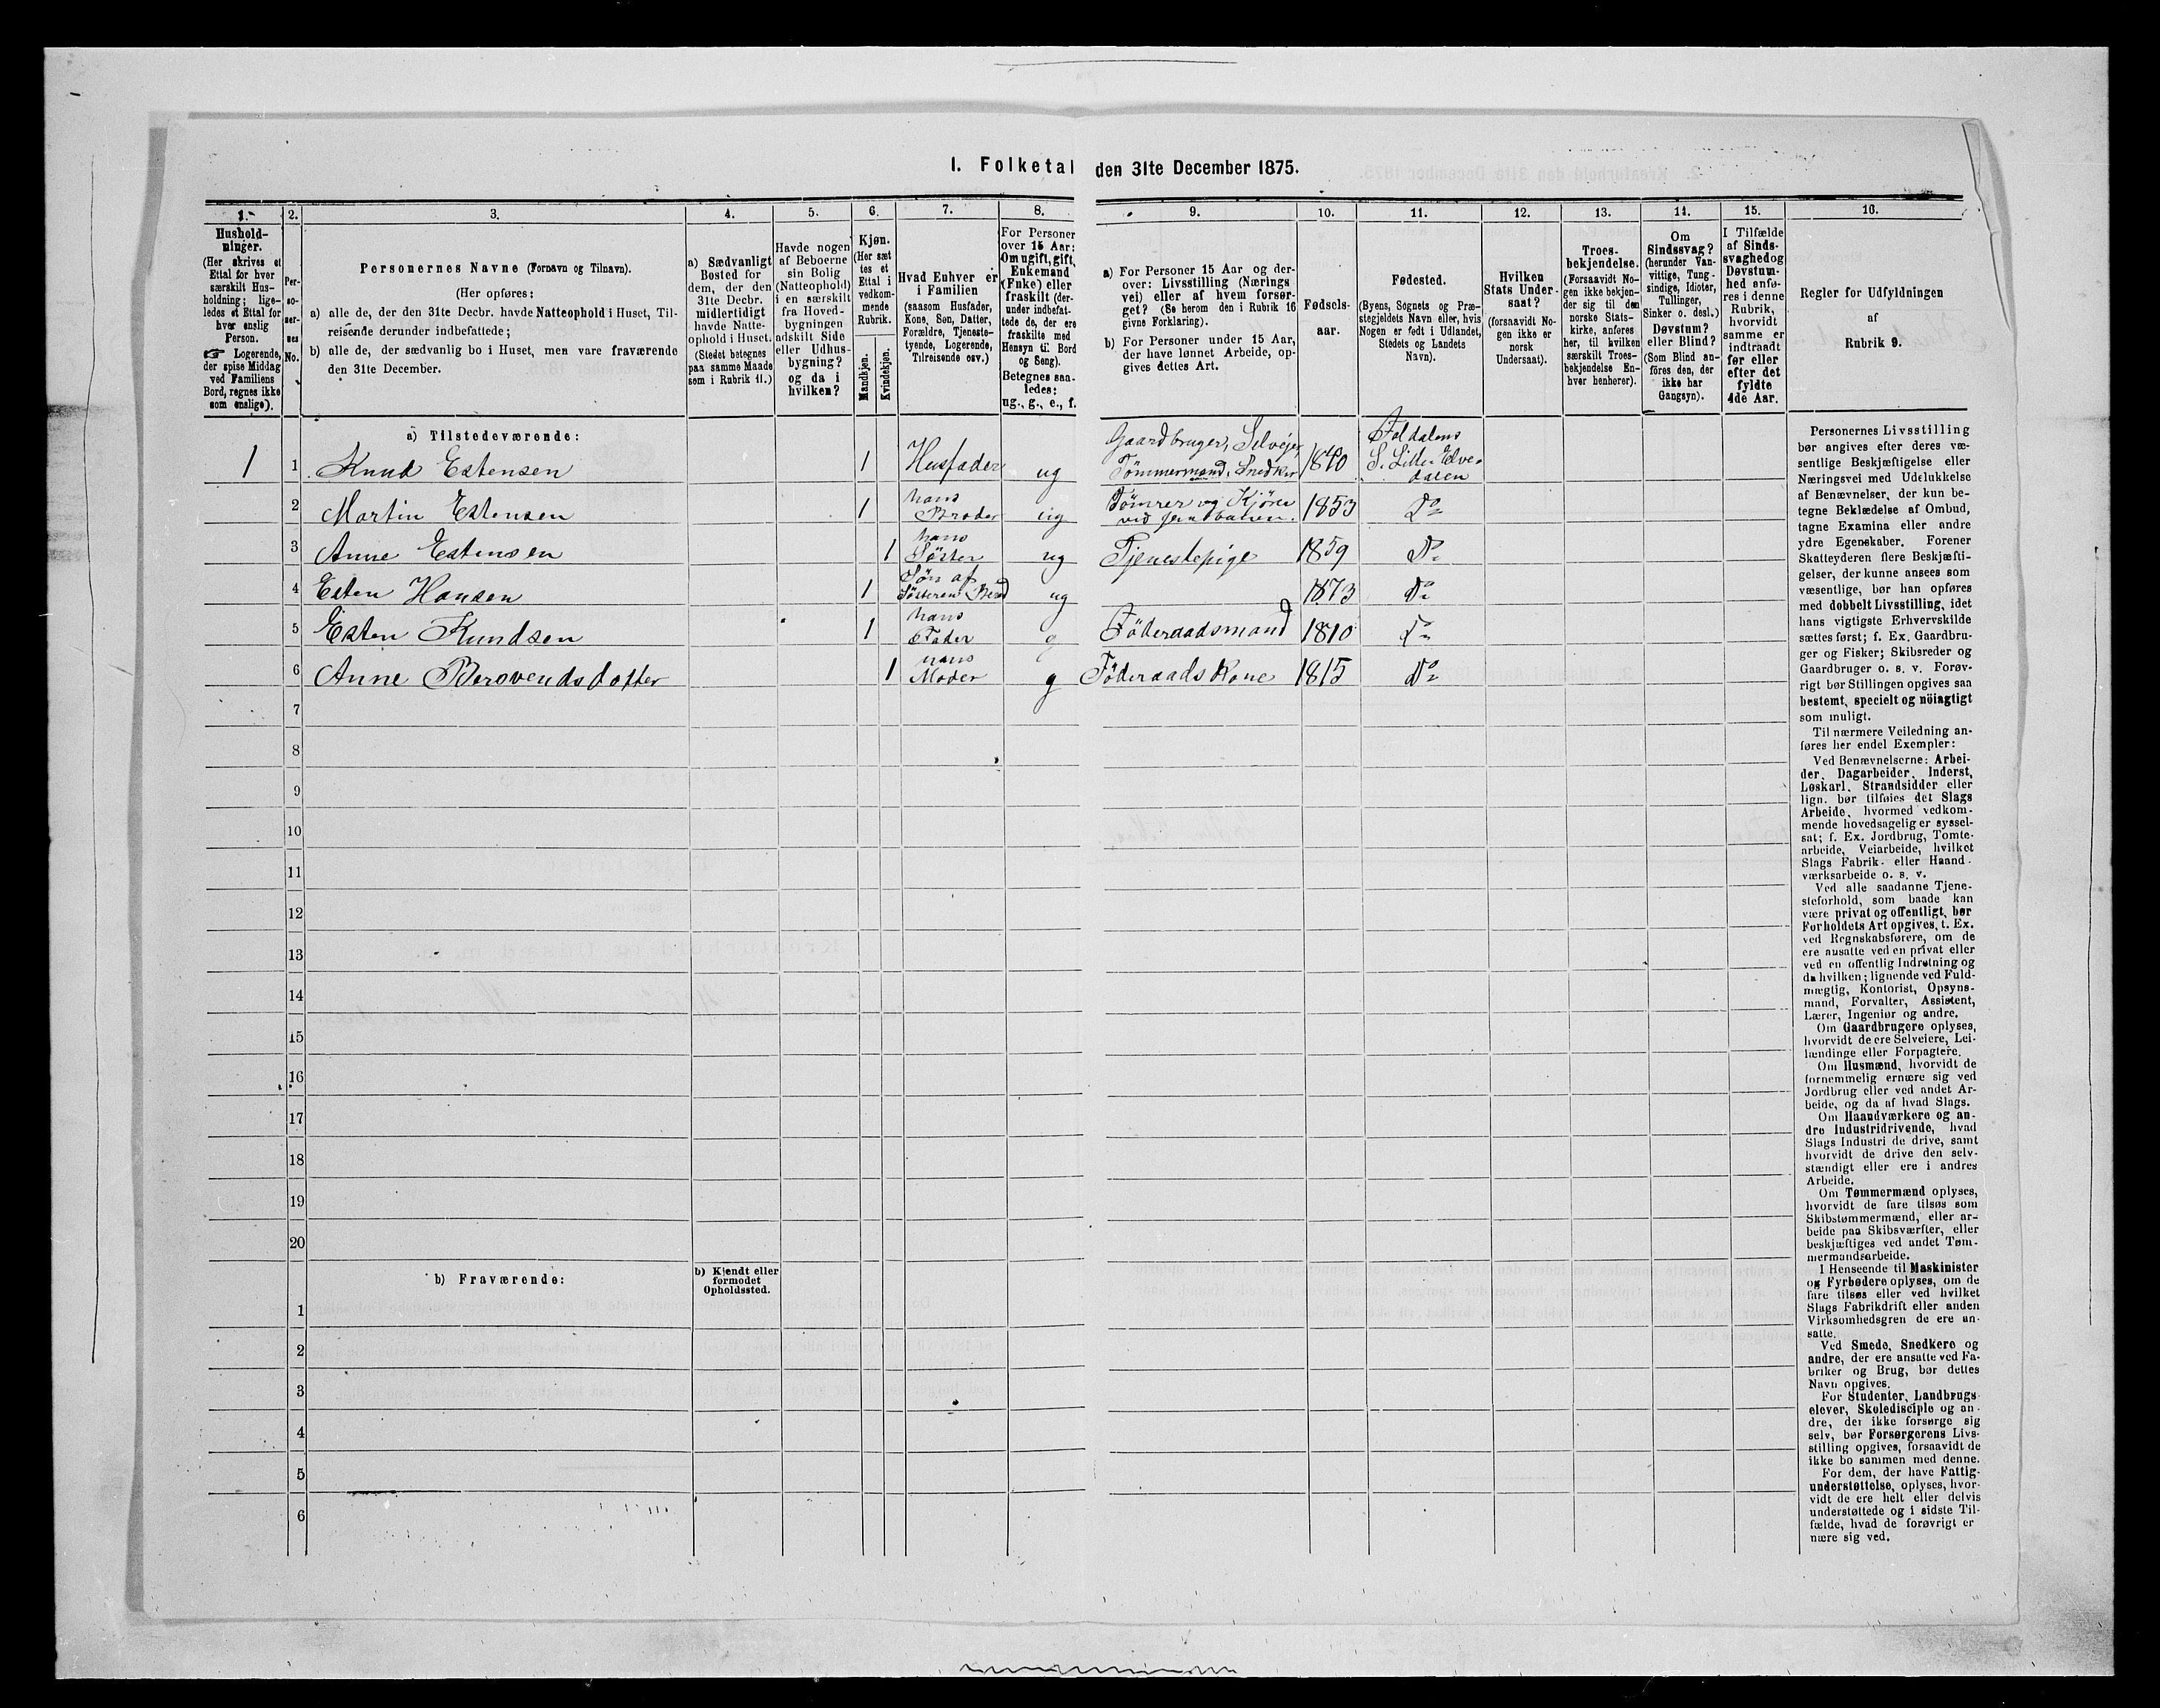 I. Folketal den 31te December 1875.
1. 2. 3. 4. 5. 6. 7. 8. 9. 10. 11. 12. 13. 14. 15. 16.
Hushold-
ninger.
(Her skrives et
Ettal for hver
særskilt Hus-
holdning; lige-
ledes et Ettal for
hver enslig
Person.
☞ Logerende,
der spise Middag
ved Familiens
Bord, regnes ikke
som enslige).
Per-
so-
ner-
nes
No.
Personernes Navne (Fornavn og Tilnavn).
(Her opføres:
a) alle de, der den 31te Decbr. havde Natteophold i Huset, Til-
reisende derunder indbefattede;
b) alle de, der sædvanlig bo i Huset, men vare fraværende
den 31te December.
a) Sædvanligt
Bosted for
dem, der den
31te Decbr.
midlertidigt
havde Natte-
ophold i Huset.
(Stedet betegnes
paa samme Maade
som i Rubrik 11.)
Havde nogen
af Beboerne
sin Bolig
(Natteophold)
i en særskilt
fra Hoved-
bygningen
adskilt Side
eller Udhus-
bygning?
og da i
hvilken?
Kjøn.
(Her sæt
tes et
Ettal i
vedkom-
mende
Rubrik.
Mandkjøn.
Kvindekjøn.
Hvad Enhver er
i Familien
(saasom Husfader,
Kone, Søn, Datter,
Forældre, Tjeneste-
tyende, Logerende,
Tilreisende osv.)
For Personer
over 15 Aar:
Om ugift, gift,
Enkemand
(Enke) eller
fraskilt (der-
under indbefat-
tede de, der ere
fraskilte med
Hensyn til Bord
og Seng).
Betegnes saa-
ledes:
ug., g., e., f.
a) For Personer 15 Aar og der-
over: Livsstilling (Nærings
vei) eller af hvem forsør-
get? (Se herom den i Rubrik 16
givne Forklaring).
b) For Personer under 15 Aar,
der have lønnet Arbeide, op-
gives dettes Art.
Fødsels-
aar.
Fødested.
(Byens, Sognets og Præ-
stegjeldets Navn eller, hvis
Nogen er født i Udlandet,
Stedets og Landets
Navn).
Hvilken
Stats Under-
saat?
(forsaavidt No-
gen ikke er
norsk
Undersaat).
Troes-
bekjendelse.
(Forsaavidt No-
gen ikke bekjen-
der sig til den
norske Stats-
kirke, anføres
her, til hvilken
særskilt Troes-
bekjendelse En-
hver henhører).
Om
Sindssvag?
(herunder Van-
vittige, Tung-
sindige, Idioter,
Tullinger,
Sinker o. desl.)
Døvstum?
eller Blind?
(Som Blind an-
føres den, der
ikke har
Gangsyn).
I Tilfælde
af Sinds-
svaghed og
Døvstum-
hed anfø-
res i denne
Rubrik,
hvorvidt
samme er
indtraadt
før eller
efter det
fyldte
4de Aar.
Regler for Udfyldningen
af
Rubrik 9.
a) Tilstedeværende:
1 1 Knud Estensen 1 Husfader ug Gaardbruger, Selveier, Tömmermand, Snedker 1840 Foldalens S. Lille Elvedalen
2 Martin Estensen 1 hans Broder ug Tömrer og Kjörer ved Jernbanen. 1853 Do
3 Anne Estensen 1 hans Söster ug Tjenestepige 1859 Do
4 Esten Hansen 1 Sön af Sösteren Berit ug 1873 Do
5 Esten Knudsen 1 hans Fader g Föderaadsmand 1810 Do
6 Anne Berovendsdatter 1 hans Moder g Föderaads Kone 1815 Do
7
8
9
10
11
12
13
14
15
16
17
18
19
20
b) Fraværende:
b) Kjendt eller
formodet
Opholdssted.
1
2
3
4
5
6
Personernes Livsstilling
bør angives efter deres væ-
sentlige Beskjæftigelse eller
Næringsvei med Udelukkelse
af Benævnelser, der kun be-
tegne Beklædelse af Ombud,
tagne Examina eller andre
ydre Egenskaber. Forener
Skatteyderen flere Beskjæfti-
gelser, der kunne ansees som
væsentlige, bør han opføres
med dobbelt Livsstilling, idet
hans vigtigste Erhvervskilde
sættes først; f. Ex. Gaardbru-
ger og Fisker; Skibsreder og
Gaardbruger o. s. v. Forøv-
rigt bør Stillingen opgives saa
bestemt, specielt og nöiagtigt
som muligt.
Til nærmere Veiledning an-
føres her endel Exempler:
Ved Benævnelserne: Arbei-
der, Dagarbeider, Inderst,
Løskarl, Strandsidder eller
lign. bør tilføies det Slags
Arbeide, hvormed vedkom-
mende hovedsagelig er syssel-
sat; f. Ex. Jordbrug, Tomte-
arbeide, Veiarbeide, hvilket
Slags Fabrik- eller Haand-
værksarbeide o. s. v.
Ved alle saadanne Tjene-
steforhold, som baade kan
være privat og offentligt, bør
Forholdets Art opgives, t. Ex.
ved Regnskabsførere, om de
ere ansatte ved en privat eller
ved en offentlig Indretning og
da hvilken; lignende ved Fuld-
mægtig, Kontorist, Opsyns-
mand, Forvalter, Assistent,
Lærer, Ingeniør og andre.
Om Gaardbrugere oplyses,
hvorvidt de ere Selveiere, Lei-
lændinge eller Forpagtere.
Om Husmænd, hvorvidt de
fornemmelig ernære sig ved
Jordbrug eller ved andet Ar-
beide, og da af hvad Slags.
Om Haandværkere og an-
dre Industridrivende, hvad
Slags Industri de drive, samt
hvorvidt de drive den selv-
stændigt eller ere i andres
Arbeide.
Om Tømmermænd oplyses,
hvorvidt de fare tilsøs som
Skibstømmermænd, eller ar-
beide paa Skibsværfter, eller
beskjæftiges ved andet Tøm-
mermandsarbeide.
I Henseende til Maskinister
og Fyrbødere oplyses, om de
fare tilsøs eller ved hvilket
Slags Fabrikdrift eller anden
Virksomhedsgren de ere an-
satte.
Ved Smede, Snedkere og
andre, der ere ansatte ved Fa-
briker og Brug, bør dettes
Navn opgives.
For Studenter, Landbrugs-
elever, Skoledisciple og an-
dre, der ikke forsørge sig
selv, bør Forsørgerens Livs-
stilling opgives, forsaavidt de
ikke bo sammen med denne.
For dem, der have Fattig-
understøttelse, oplyses, hvor-
vidt de ere helt eller delvis
understøttede og i sidste Til-
fælde, hvad de forøvrigt er
nære sig ved.